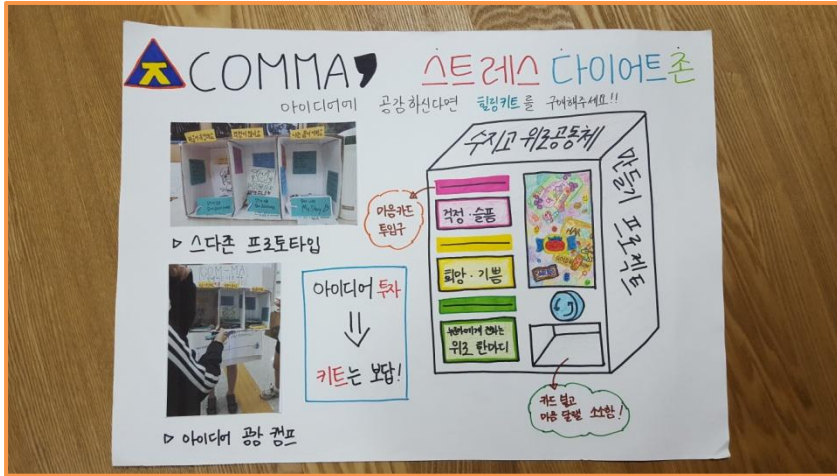 COMMA, 스트레스 다이어트존
아이디어에 공감하신다면 힐링키트를 구매해주세요!!
▷ 스다존 프로토타입
COM-MA
▷ 아이디어 공장 캠프
아이디어 투자
⇓
키트는 보답!
수지고 위로공동체
만들기 프로젝트
마음카드
투입구
걱정·슬픔
희망·기쁨
누군가에게 전하는
위로 한마디
카드 넣고
마음 달랠 소소함!